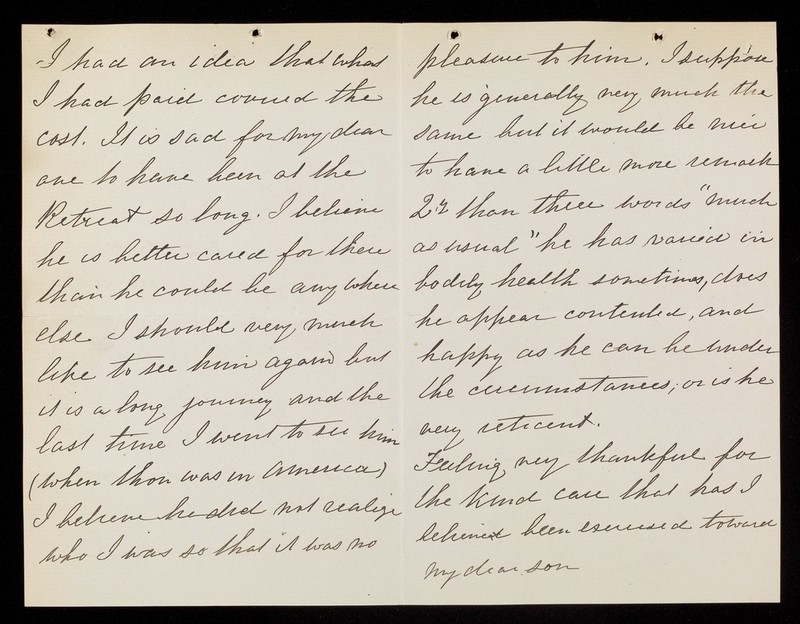 -I had an idea that what
I had paid covered the
cost. It is sad for my dear
one to have been at the
Retreat so long. I believe
he is better cared for there
than he could be anywhere
else I should very much
like to see him again but
it is a long journey and the
last time I went to see him
(when thou was in America)
I believe he did not realize
who I was so that it was no
pleasure to him. I suppose
he is generally very much the
same but it would be nice
to have a little more remark
than three words "much
as usual" he has varied in
bodily health sometimes, does
he appear contented, and
happy as he can be under
the circumstances; or is he
very reticent.
Feeling very thankful for
the kind care that has I
believe been exercised toward
my dear son